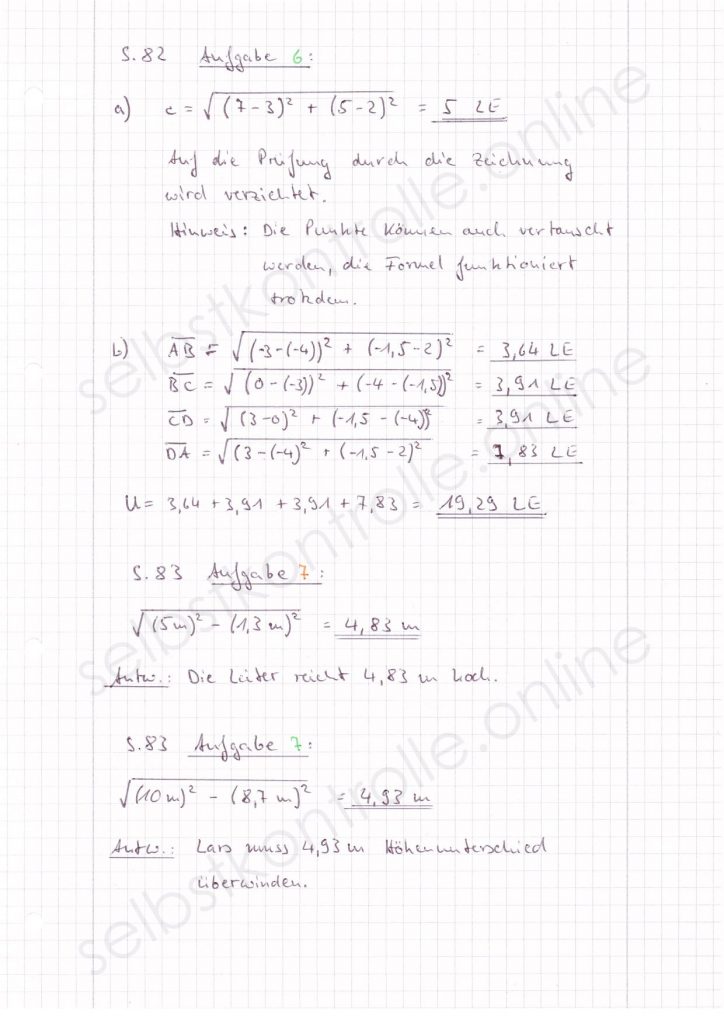 S.82 Aufgabe 6:
a) c = √((7-3)² + (5-2)²) = 5 LE
Auf die Prüfung durch die Zeichnung
wird verzichtet.
Hinweis: Die Punkte können auch vertauscht
werden, die Formel funktioniert
trotzdem.
b) AB = √((-3-(-4))² + (-1,5-2)²) = 3,64 LE
BC = √((0-(-3))² + (-4-(-1,5))² = 3,91 LE
CD = √((3-0)² + (-1,5-(-4))² = 3,91 LE
DA = √((3-(-4)² + (-1,5-2)² = 7,83 LE
U = 3,64 + 3,91 + 3,91 + 7,83 = 19,29 LE
S.83 Aufgabe 7:
√((5m)² - (1,3m)²) = 4,83 m
Antw.: Die Leiter reicht 4,83 m hoch.
S.83 Aufgabe 7:
√((10m)² - (8,7m)²) = 4,93 m
Antw.: Lars muss 4,93 m Höhenunterschied
überwinden.
selbstkontrolle.online
selbstkontrolle.online
selbstkontrolle.online